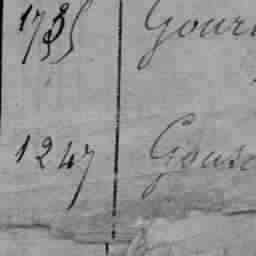 1735 Gour
1247 Gouse